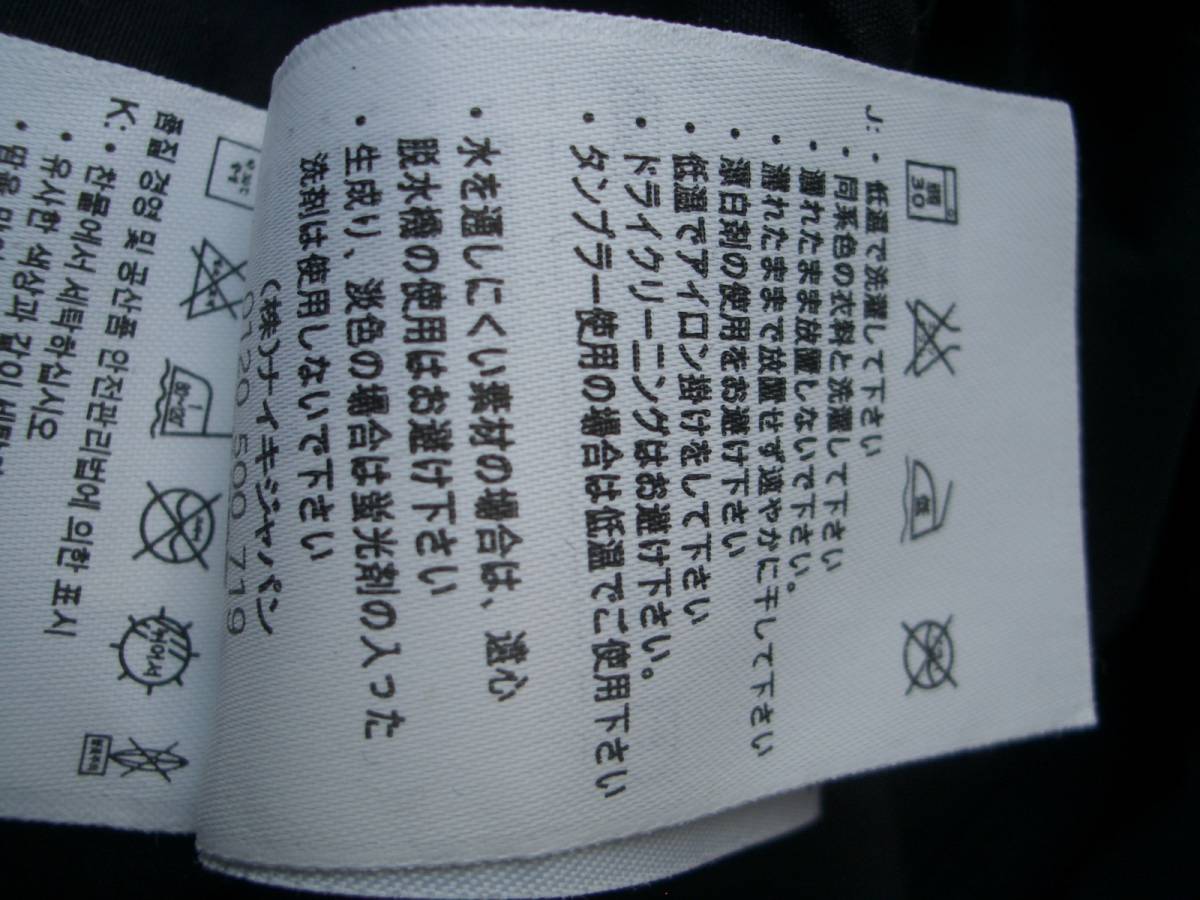 限
30
低
J: • 低温で洗濯して下さい
• 同系色の衣料と洗濯して下さい
• 濡れたまま放置しないで下さい。
• 濡れたままで放置せず速やかに干して下さい
• 漂白剤の使用をお避け下さい
• 低温でアイロン掛けをして下さい
• ドライクリーニングはお避け下さい。
• タンブラー使用の場合は低温でご使用下さい
• 水を通しにくい素材の場合は、遠心
脱水機の使用はお避け下さい
• 生成り、淡色の場合は蛍光剤の入った
洗剤は使用しないで下さい
(株)ナイキジャパン
0120 500 719
품질 경영 및 공산품 안전관리법에 의한 표시
K: • 찬물에서 세탁하십시오
• 유사한 색상과 같이